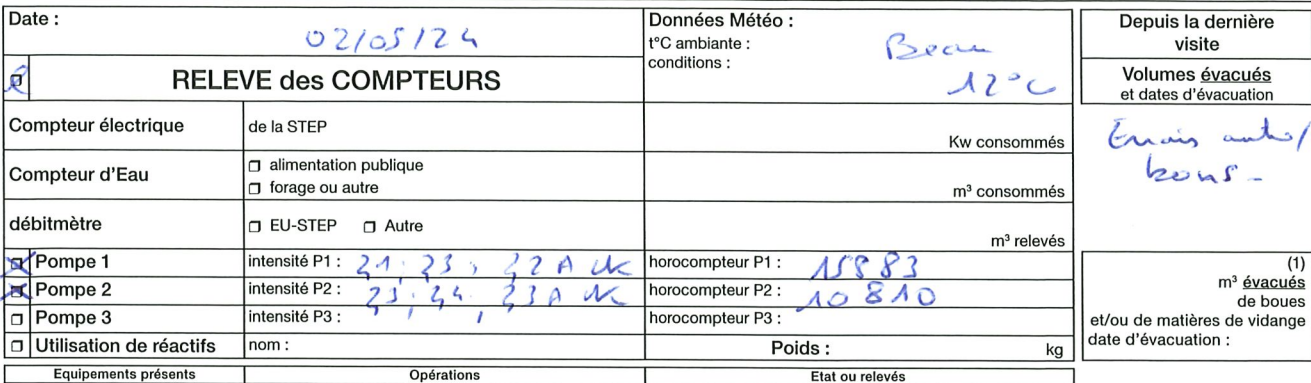 Date : 02/05/24
Données Météo :
t°C ambiante : Beau
conditions : 12°C
Depuis la dernière visite
RELEVE des COMPTEURS
Volumes évacués
et dates d'évacuation
Compteur électrique de la STEP Kw consommés
Essais auto/
bons -
Compteur d'Eau alimentation publique
forage ou autre m³ consommés
débitmètre EU-STEP Autre m³ relevés
Pompe 1 intensité P1 : horocompteur P1 : 15883
Pompe 2 intensité P2 : horocompteur P2 : 10810
Pompe 3 intensité P3 : horocompteur P3 :
Utilisation de réactifs nom : Poids : kg
(1)
m³ évacués
de boues
et/ou de matières de vidange
date d'évacuation :
Equipements présents Opérations Etat ou relevés